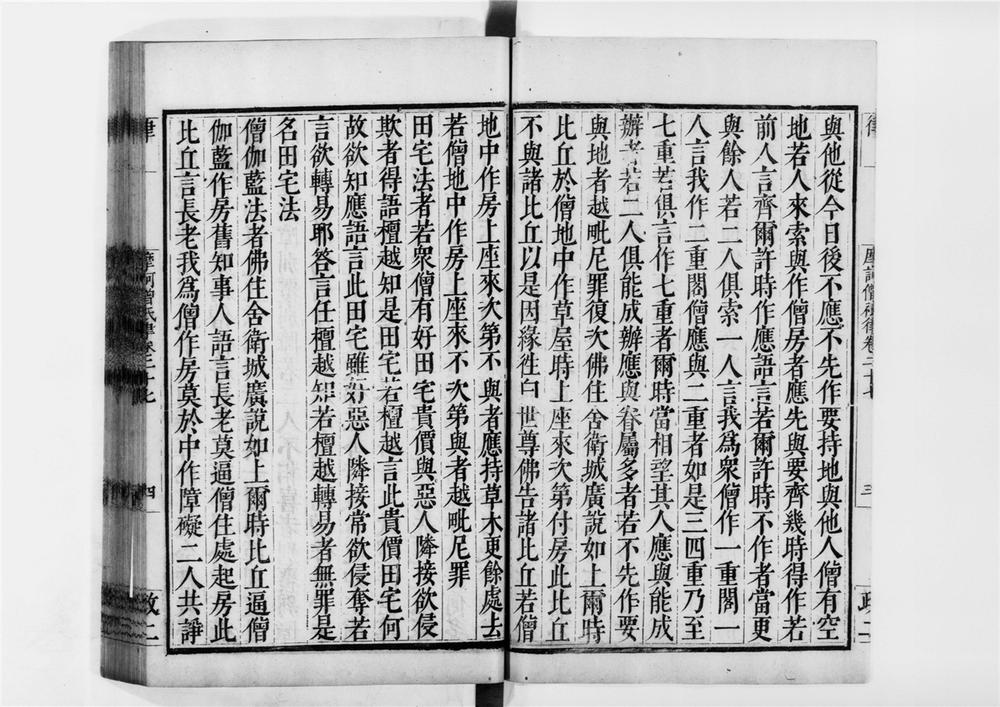 與他從今日後不應不先作要持地與他人僧有空
地若人來索與作僧房者應先與要齊幾時得作若
前人言齊爾許時作應語言若爾許時不作者當更
與餘人若二人俱索一人言我爲衆僧作一重閣一
人言我作二重閣僧應與二重者如是三四重乃至
七重若俱言作七重者爾時當相望其人應與能成
辦者若二人俱能成辦應與眷屬多者若不先作要
與地者越毗尼罪復次佛住舍衛城廣說如上爾時
比丘於僧地中作草屋時上座來次第付房此比丘
不與諸比丘以是因緣徃白世尊佛告諸比丘若僧
律
摩訶僧祇律卷二十七
三
政二
地中作房上座來次第不與者應持草木更餘處去
若僧地中作房上座來不次第與者越毗尼罪
田宅法者若衆僧有好田宅貴價與惡人隣接欲侵
欺者得語檀越知是田宅若檀越言此貴價田宅何
故欲知應語言此田宅雖好惡人隣接常欲侵奪若
言欲轉易耶答言任檀越知若檀越轉易者無罪是
名田宅法
僧伽藍法者佛住舍衛城廣說如上爾時比丘逼僧
伽藍作房舊知事人語言長老莫逼僧住處起房此
比丘言長老我爲僧作房莫於中作障礙二人共諍
律
摩訶僧祇律卷二十七
四
政二